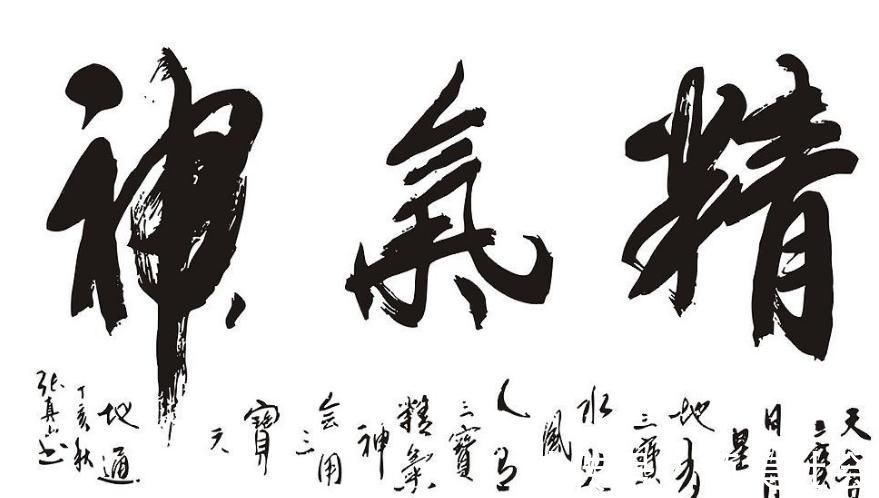 精氣神
天有
三寶
日月
星
地有
三寶
水火
風
人有
三寶
精氣
神
会用
三
寶
天
地通
丁亥秋
张真